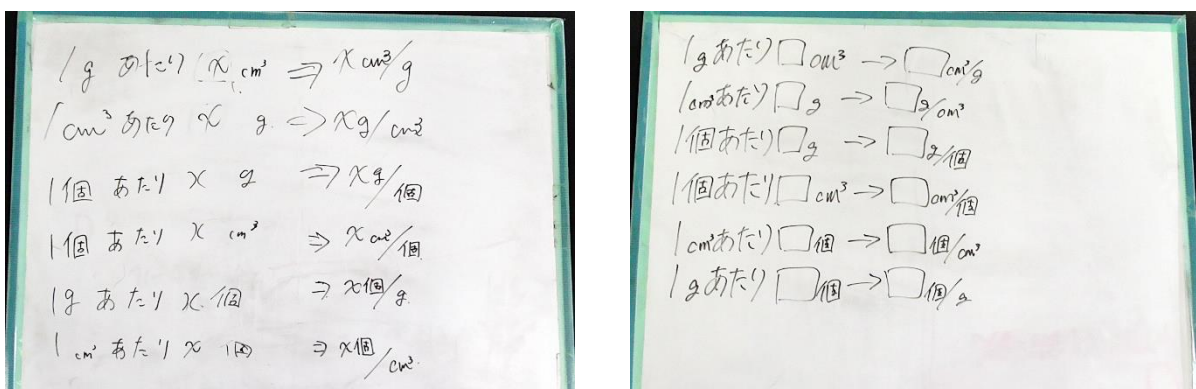 1g あたり x cm³ ⇒ x cm³/g
1cm³ あたり x g ⇒ xg/cm³
1個 あたり x g ⇒ xg/個
1個 あたり x cm³ ⇒ x cm³/個
1g あたり x 個 ⇒ x個/g
1cm³ あたり x 個 ⇒ x個/cm³
1gあたり□cm³ → □cm³/g
1cm³あたり□g → □g/cm³
1個あたり□g → □g/個
1個あたり□cm³ → □cm³/個
1cm³あたり□個 → □個/cm³
1gあたり□個 → □個/g